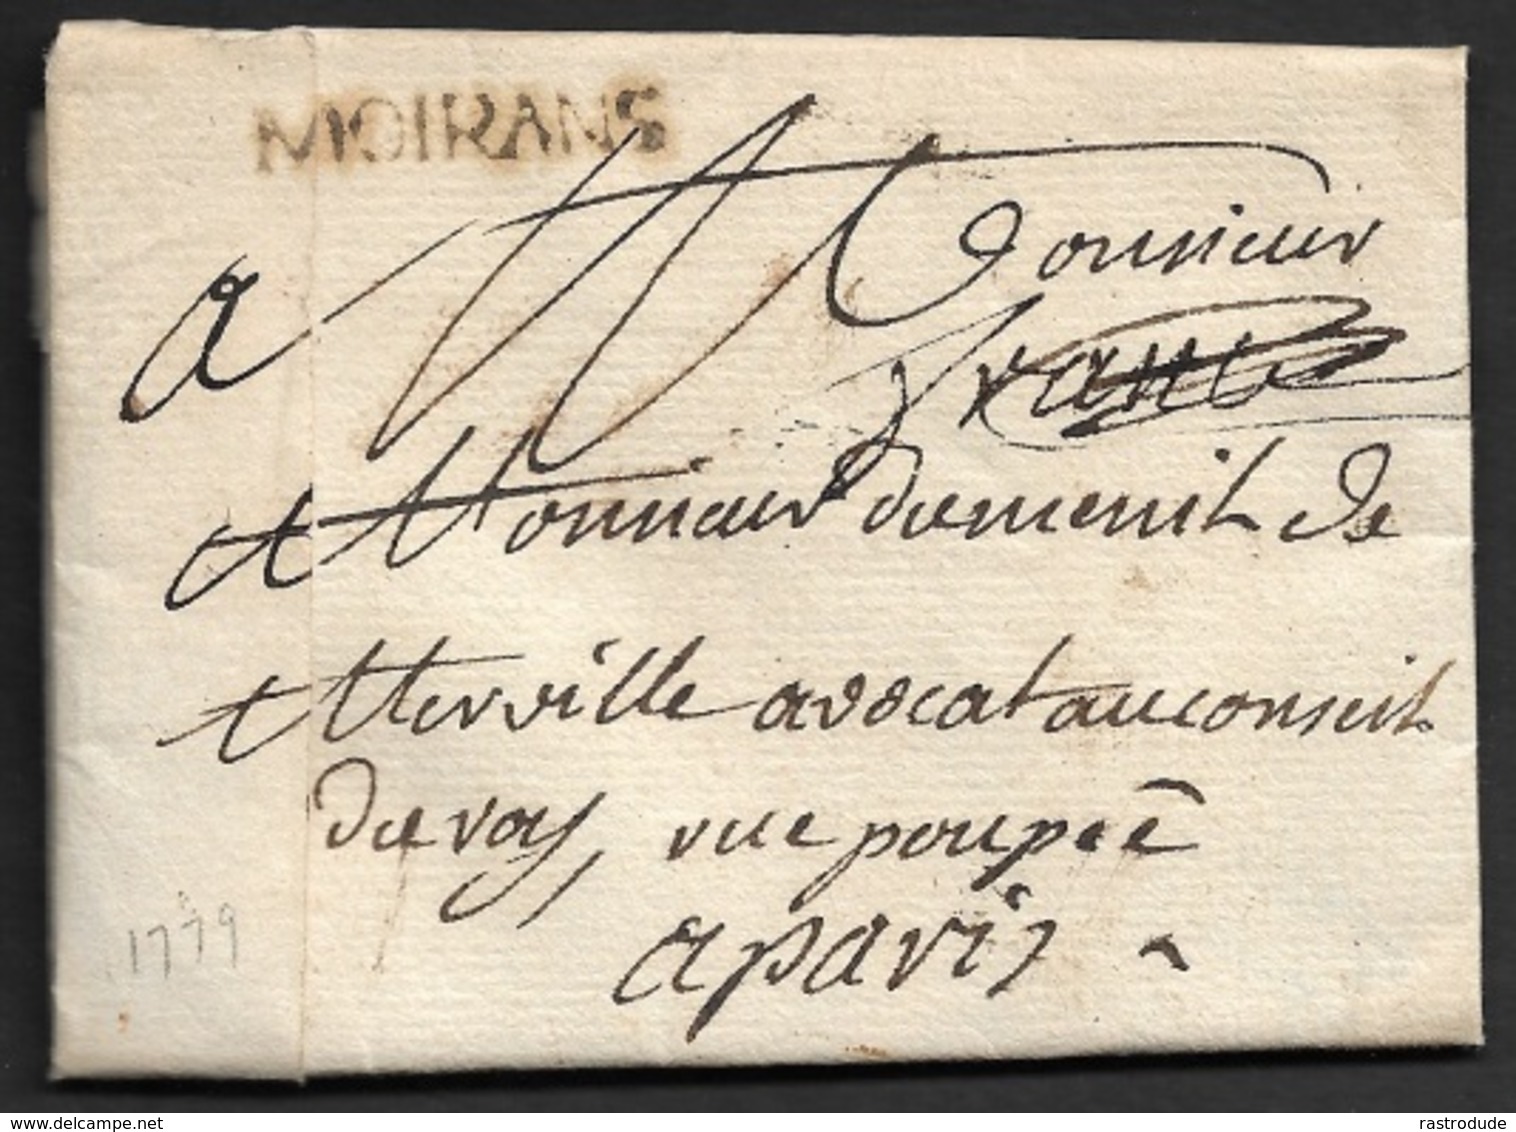 MOIRANS
a Monsieur
franc
Monsieur dumenil de
Merville avocat au conseil
du roy, rue poupeē
a paris
1779
rastrodude
www.delcampe.net